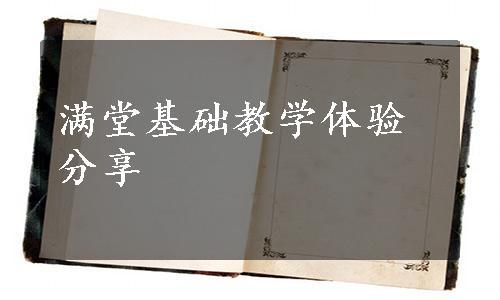 满堂基础教学体验
分享